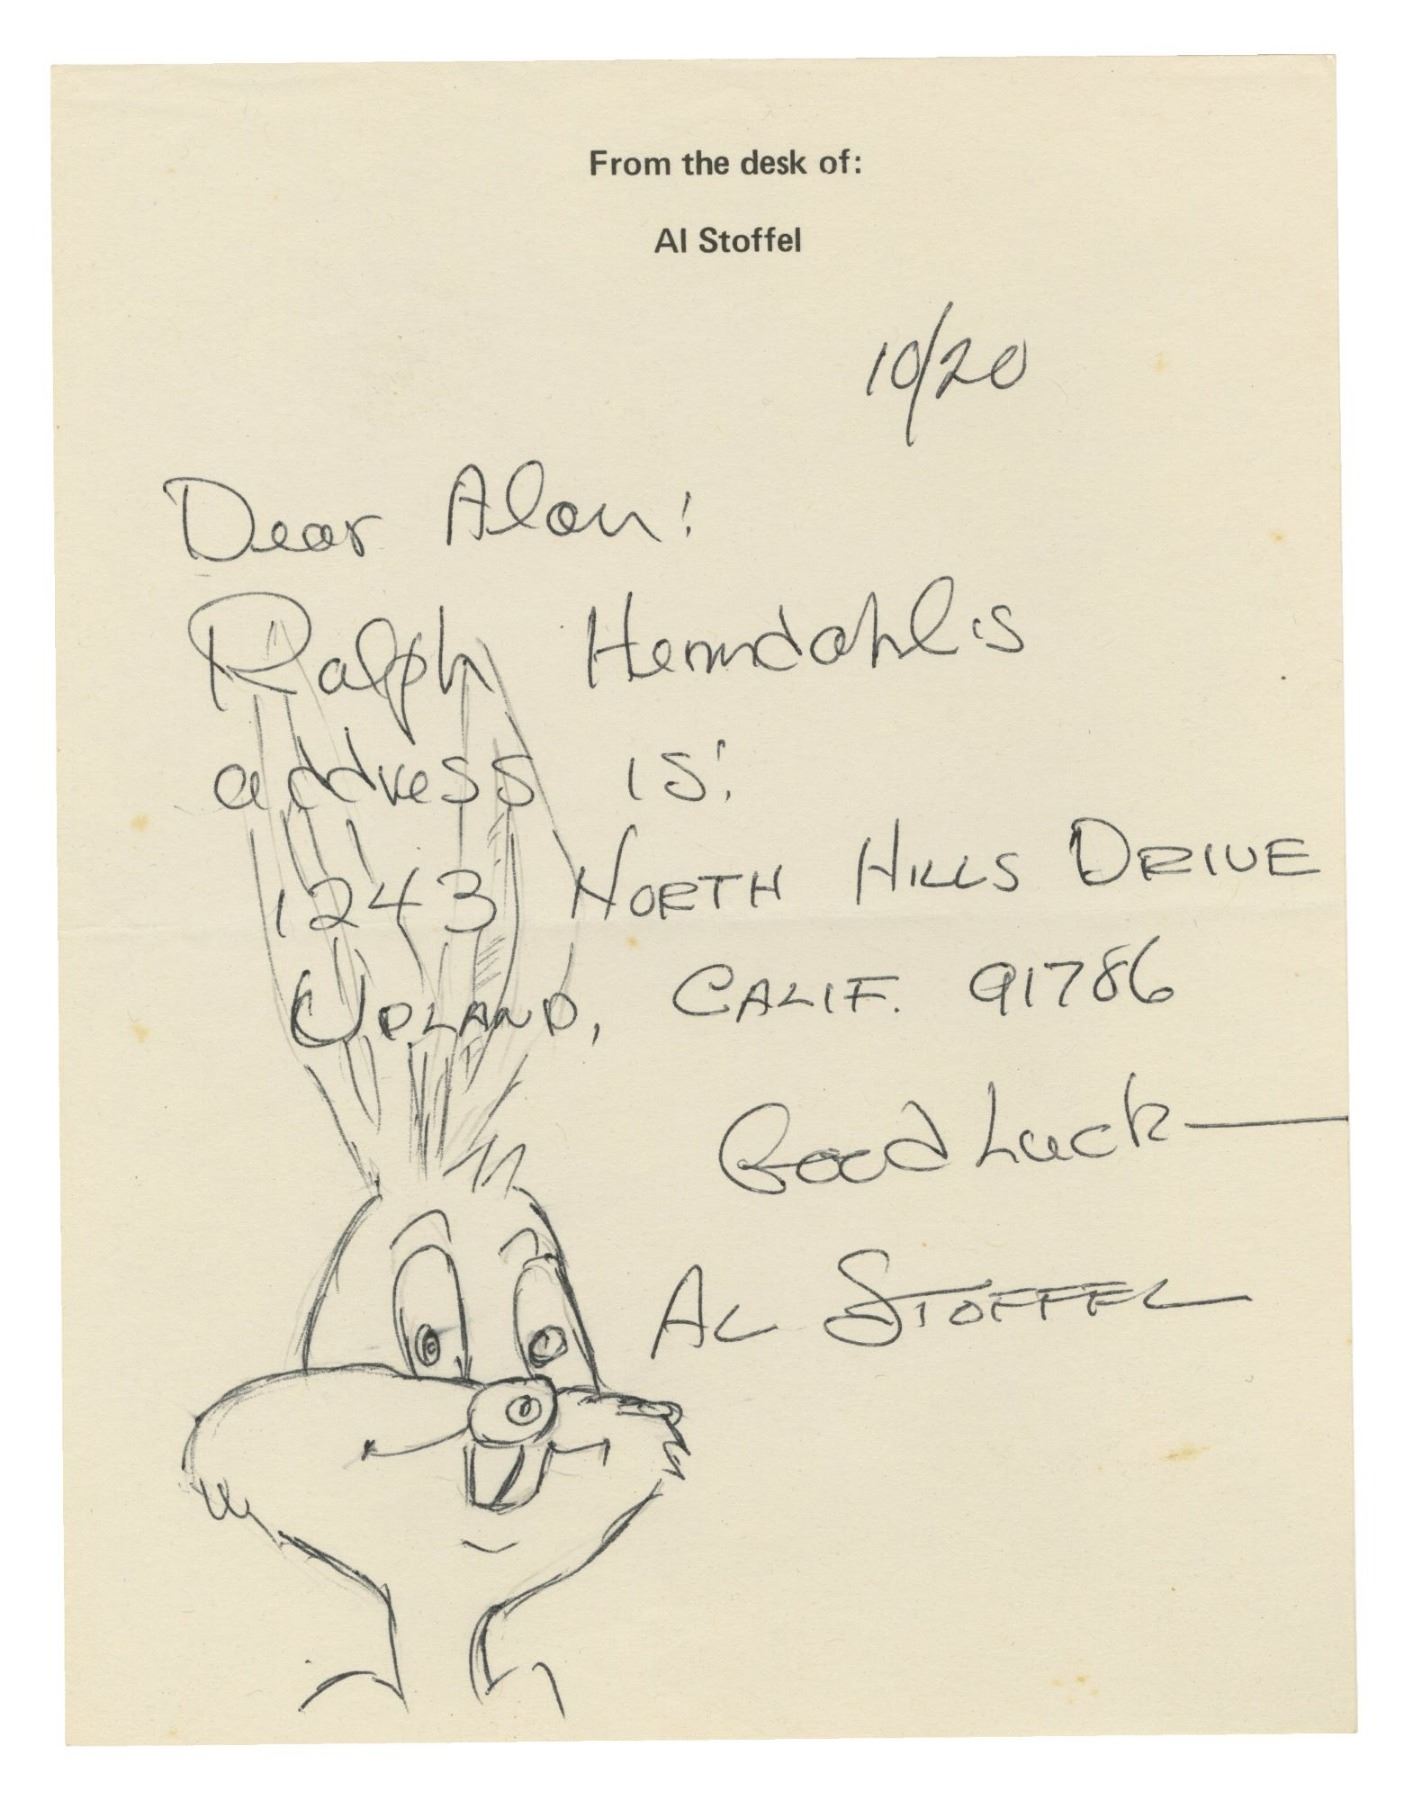 From the desk of:
Al Stoffel
10/20
Dear Alan:
Ralph Heimdahl's
address is:
1243 NORTH HILLS DRIVE
UPLAND, CALIF. 91786
Good Luck—
AL STOFFEL